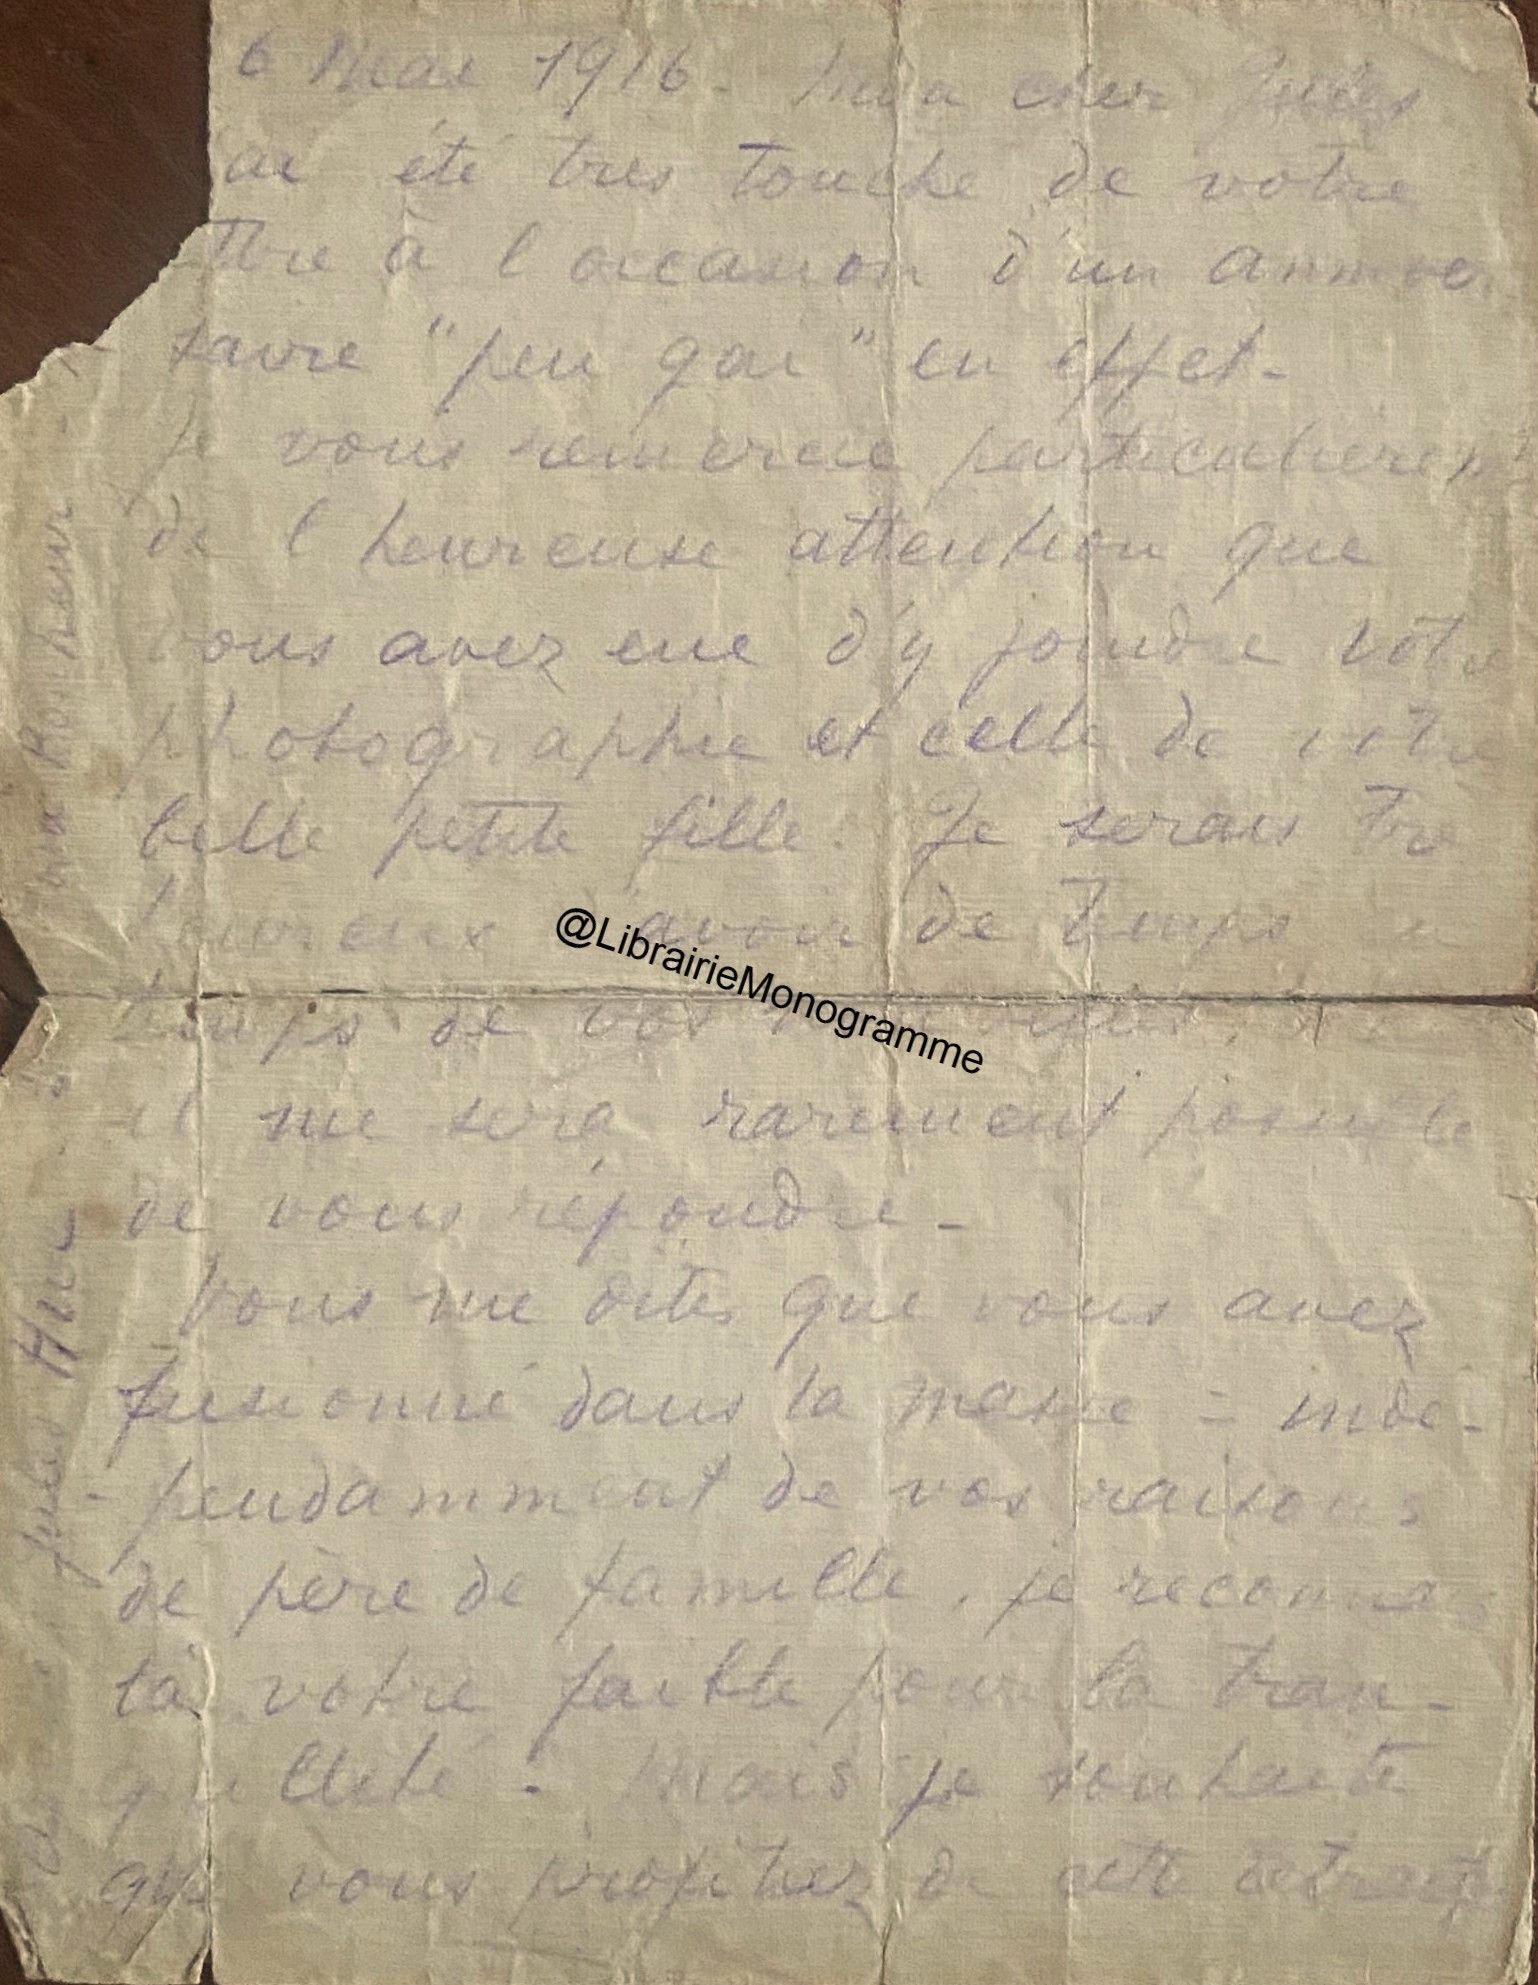 6 Mai 1916. Mon cher Jules
ai été très touché de votre
ttre à l'occasion d'un anniver
saire "peu gai" en effet -
je vous remercie particulièrem
de l'heureuse attention que
vous avez eue d'y joindre votre
photographie et celle de votre
belle petite fille. Je serais tre
heureux d'avoir de temps à
temps de vos
il me sera rarement possible
de vous répondre -
Vous me dites que vous avez
fusionné dans la masse - indé-
- pendamment de vos raisons
de père de famille, je reconnais
là votre faible pour la tran-
quillité - Mais je souhaite
que vous profitiez de cette
Jules
@LibrairieMonogramme